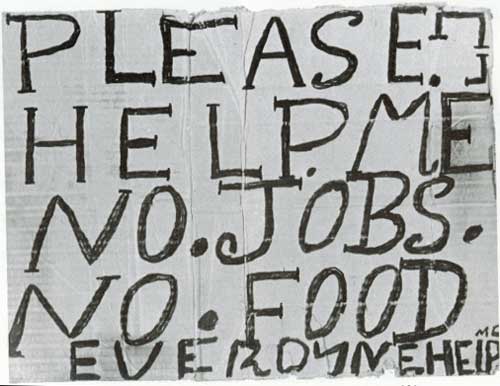 PLEASE.
HELP. ME
NO. JOBS.
NO. FOOD
EVERDYNE HELP ME